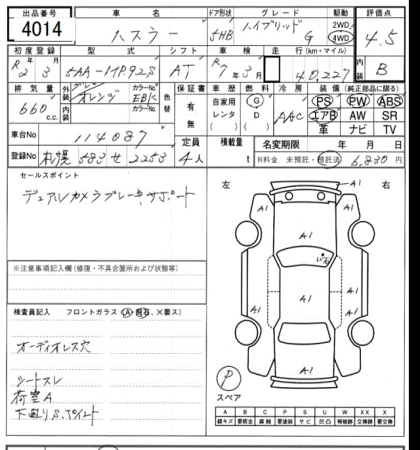 出品番号 車名 ドア形状 グレード 駆動 評価点
4014 ハスラー 5HB ハイブリッド G 2WD 4WD 4.5
初度登録 型式 シフト 車検 走行(km・マイル) 内装
R2 3 5AA-MR92S AT R7年3月 40,227 B
排気量 外装 オレンジ カラーNo. 色替 保証書 車歴 燃料 冷房 装備(純正部品に限る)
660 cc. 内装 カラーNo. 有 無 自家用 レンタ G D AAC PS PW ABS
エアB AW SR
革 ナビ TV
車台No 114087
定員 積載量 名変期限 年 月 日
登録No 札幌 583 せ 2253 4人 t R料金 未預託・預託済 6,830円
セールスポイント
デュアルカメラブレーキサポート
左 右
A1 A1
A1
A1 A1
A1
A1 A1
A1
※注意事項記入欄(修復・不具合箇所および状態等)
検査員記入 フロントガラス(A 飛石、×要ス)
オーディオレス穴
シートスレ
荷室A
下廻りS、ペイント
P
スペア
A B C P S U W X XX
線キズ 要板金 腐蝕 要塗装 サビ 凹 補修跡 要交換 交換済